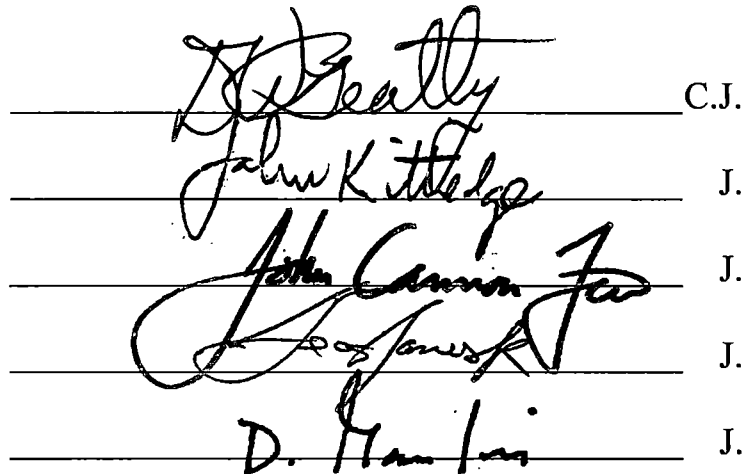 D Beatty C.J.
John Kittredge J.
John Cannon Few J.
Geo James Jr J.
D. Garrison J.